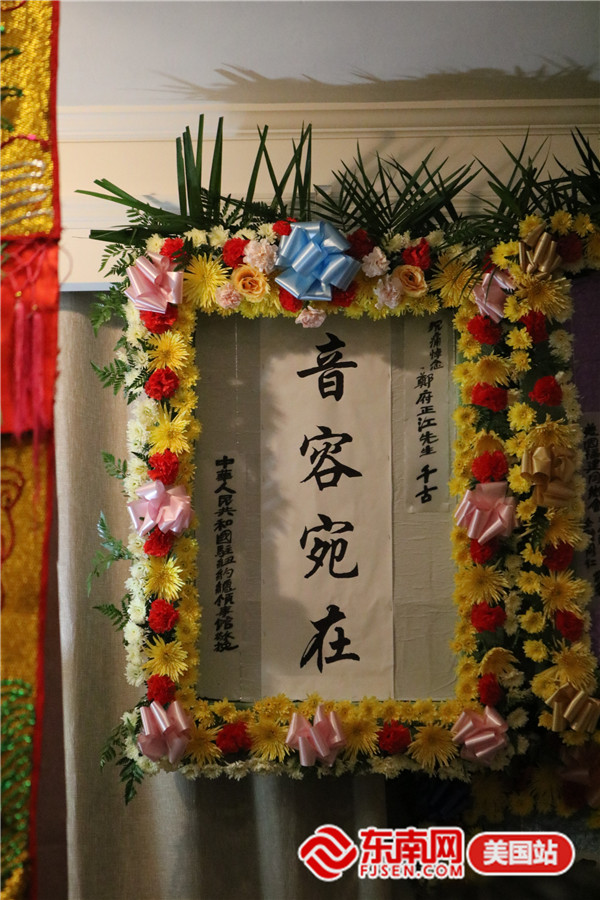 沉痛悼念 鄭府正江先生 千古
音容宛在
中華人民共和國駐紐約總領事館敬挽
东南网
FJSEN.COM
美国站